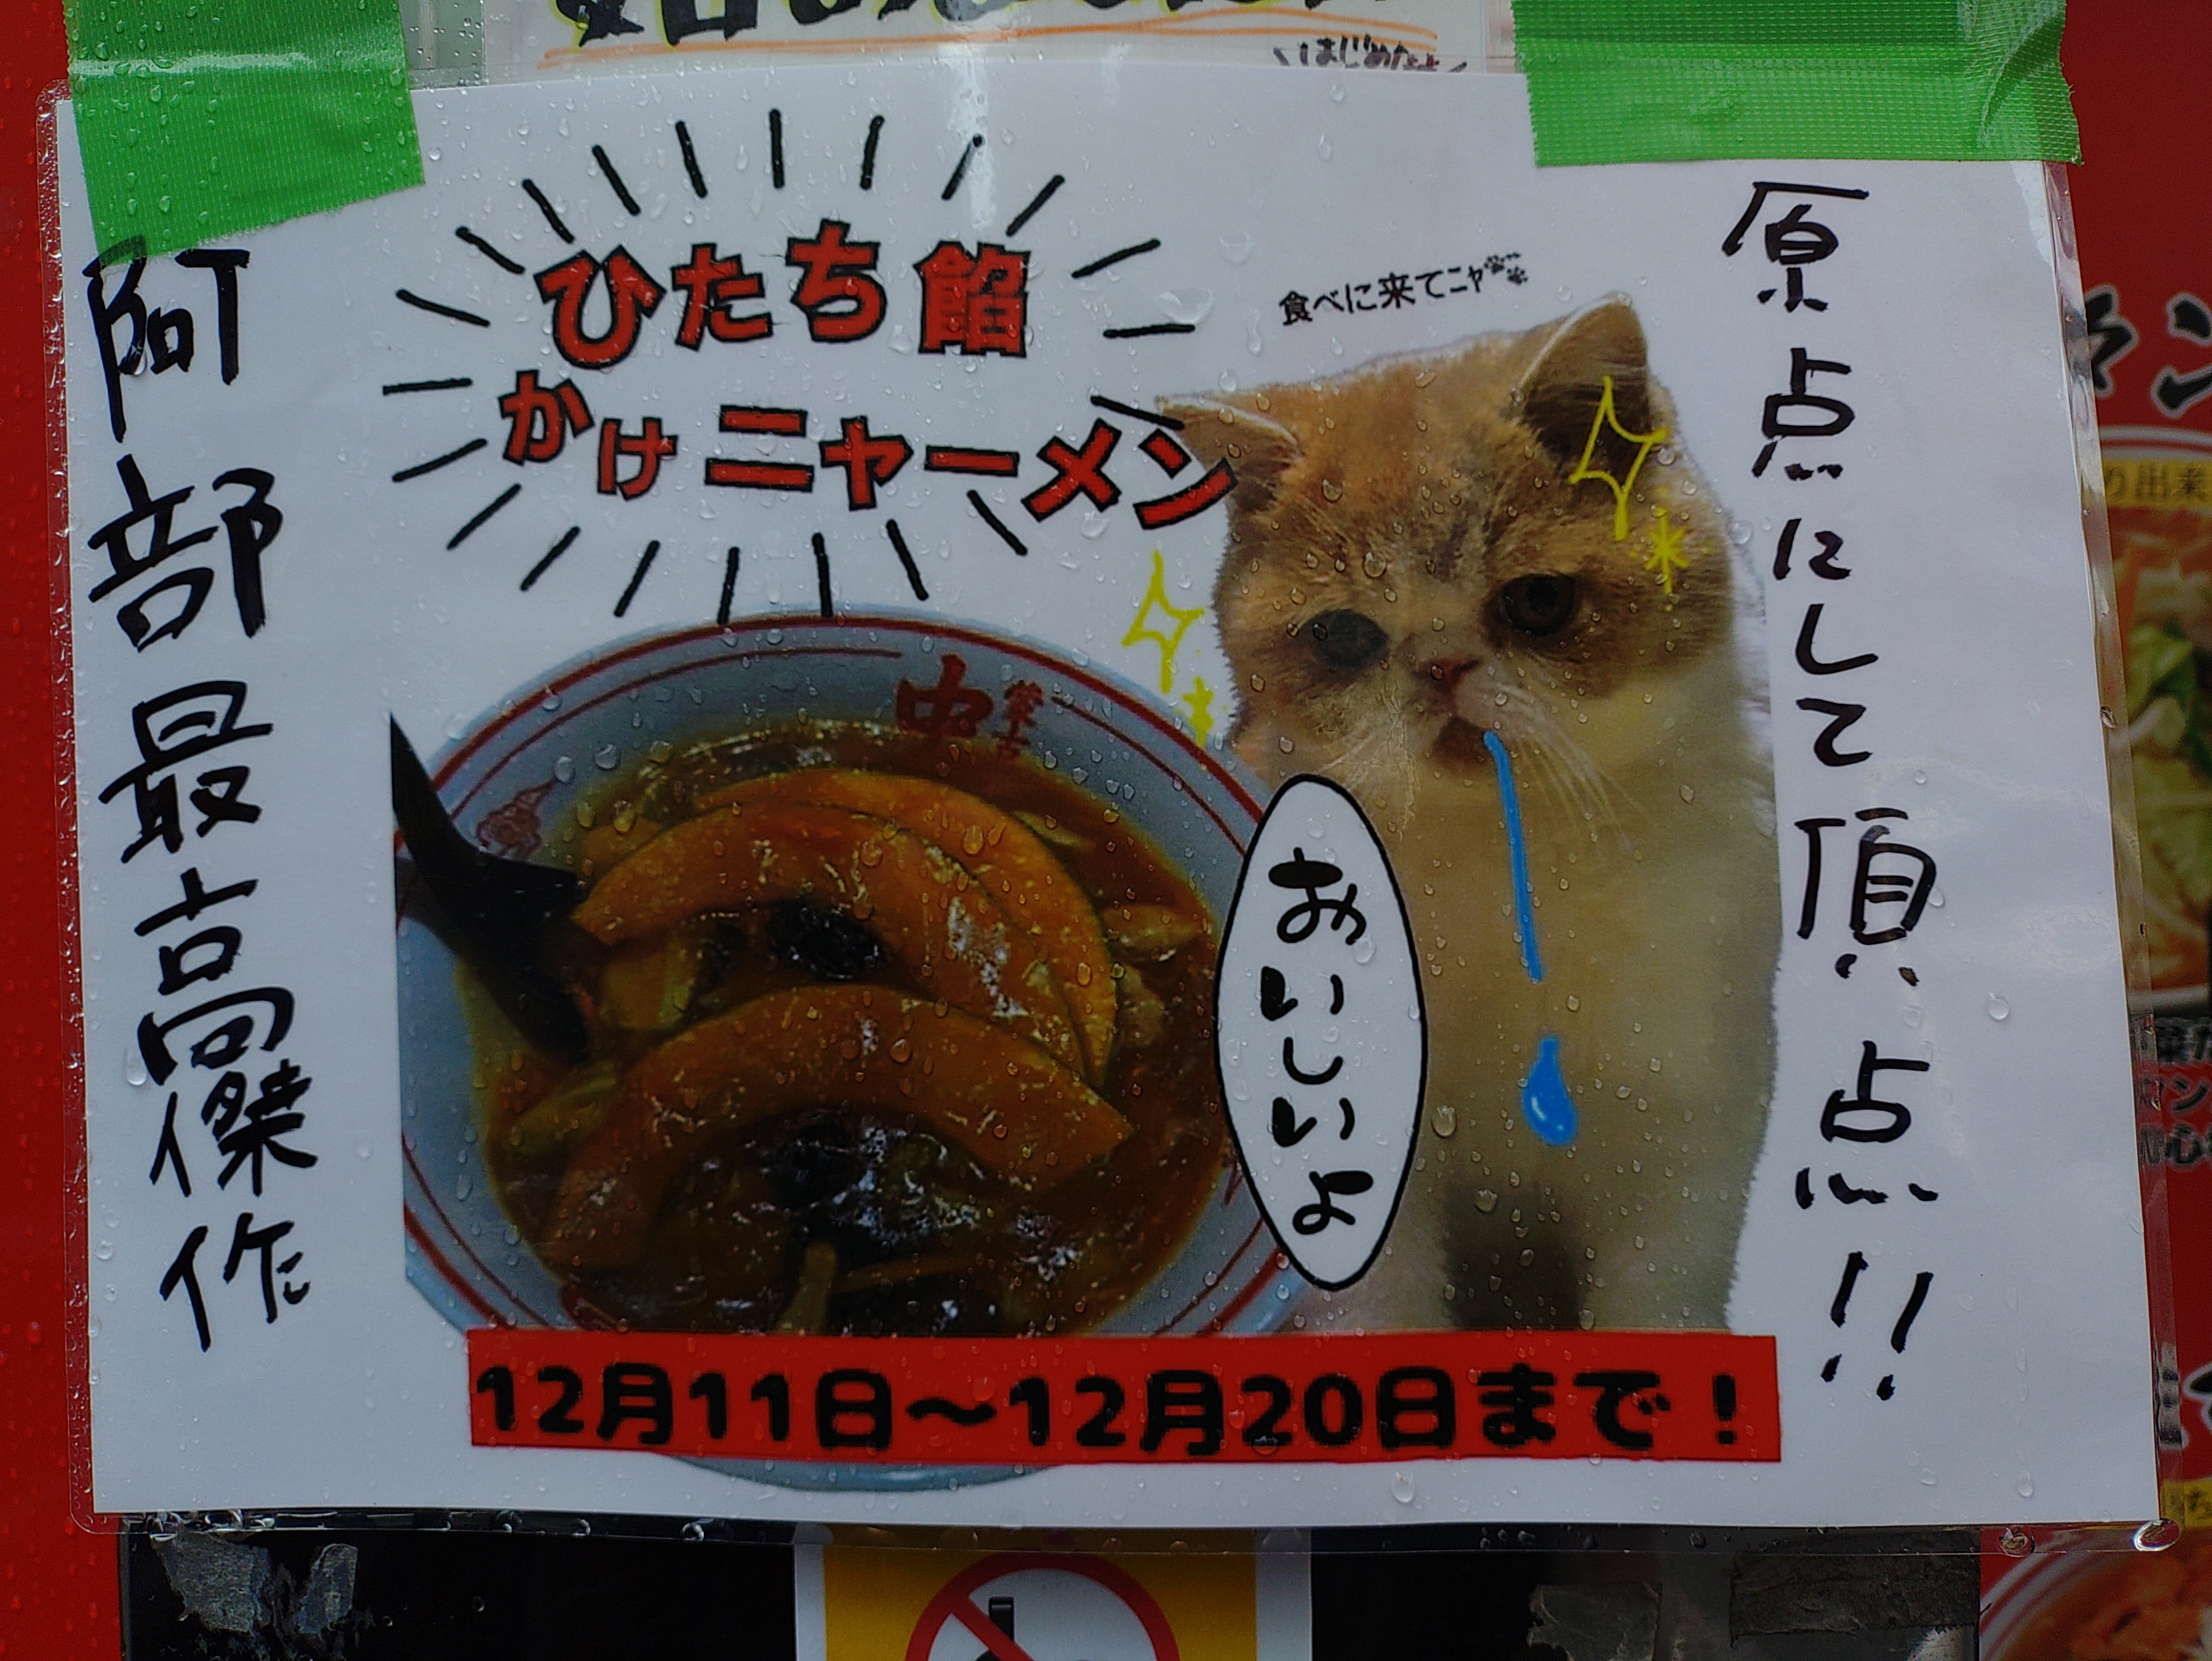 はじめたよ
原点にして頂点!!
ひたち餡
かけニャーメン
食べに来てニャ
おいしいよ
阿部最高傑作
12月11日〜12月20日まで！